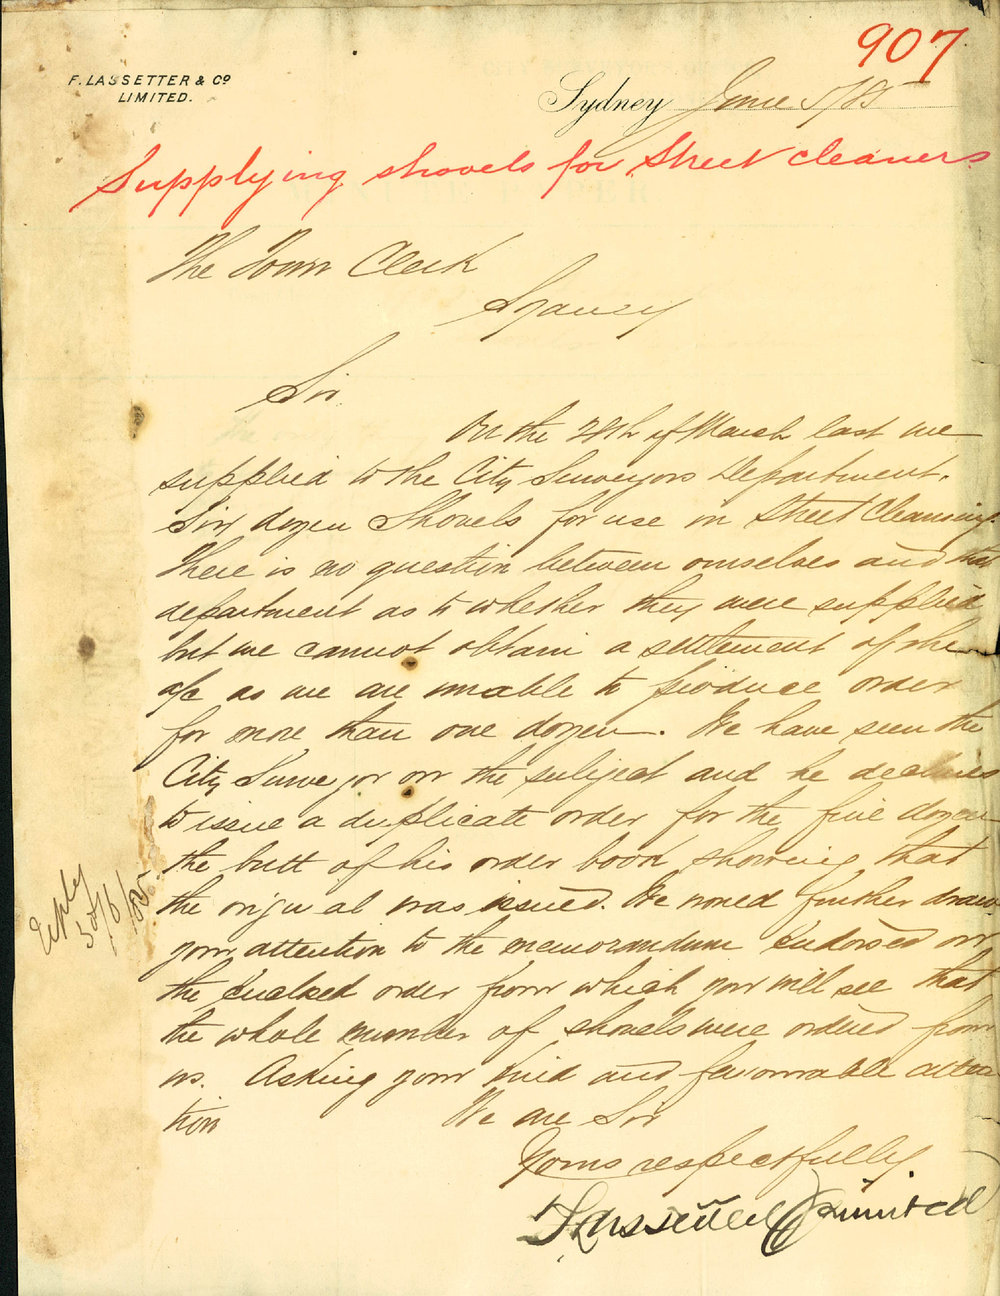 907
F. LASSETTER & Co
LIMITED.
Sydney June 5/85
Supplying shovels for Street cleaners.
The Town Clerk
Sydney
Sir
On the 28th of March last we
supplied to the City Surveyors Department.
Six dozen Shovels for use in Street Cleansing.
There is no question between ourselves and that
department as to whether they were supplied
but we cannot obtain a settlement of the
a/c as we are unable to produce order
for more than one dozen. We have seen the
City Surveyor on the subject and he declines
to issue a duplicate order for the five dozen
the butt of his order book showing that
the original was issued. We would further draw
your attention to the memorandum Endorsed on
the Enclosed order from which you will see that
the whole number of shovels were ordered from
us. Asking your kind and favourable atten-
tion We are Sir
Yours respectfully
F Lassetter & Co Limited
Reply
/6/85